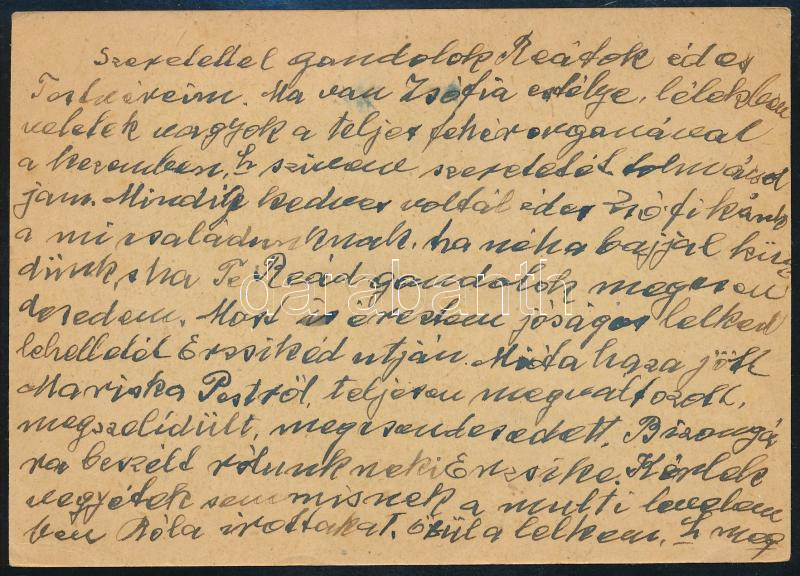 Szeretettel gondolok Reátok édes
Testvéreim. Ma van Zsófia estélye, lélekben
veletek vagyok a teljes fehér orgonával
a kezemben, h szivem szeretetét tolmácsol
jam. Mindig kedves voltál édes Zsófikánk
a mi családunknak, ha néha bajjal küz
dünk s ha Te Reád gondolok megcsen
desedem. Most is éreztem jóságos lelked
lehelletét Erzsikéd utján. Mióta haza jött
Mariska Pestről, teljesen megváltozott,
megszelídült, megcsendesedett. Bizonyá
ra beszélt rólunk neki Erzsike. Kérlek
vegyétek semmisnek a multi levelem
ben Róla irottakat. Örül a lelkem, h meg
darabanth